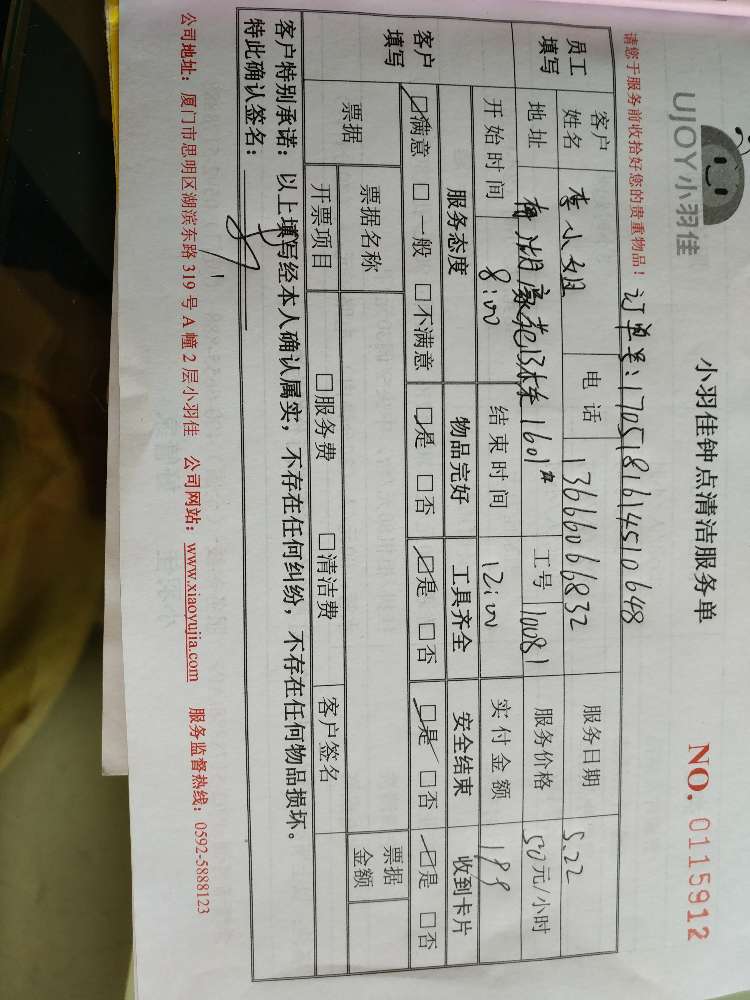 UJOY小羽佳
小羽佳钟点清洁服务单
NO. 0115912
请您于服务前收拾好您的贵重物品！
订单号:1705181614510648
员工填写
客户姓名 李小姐 电话 13666066832 服务日期 5.22
地址 湖豪苑13栋1601# 工号 10081 服务价格 50元/小时
开始时间 8:00 结束时间 12:00 实付金额 199
客户填写
服务态度 物品完好 工具齐全 安全结束 收到卡片
☑满意 □一般 □不满意 ☑是 □否 ☑是 □否 ☑是 □否 ☑是 □否
票据 票据名称 票据金额
开票项目 □服务费 □清洁费 客户签名
客户特别承诺：以上填写经本人确认属实，不存在任何纠纷，不存在任何物品损坏。
特此确认签名：
公司地址：厦门市思明区湖滨东路319号A幢2层小羽佳 公司网站：www.xiaoyujia.com 服务监督热线：0592-5888123